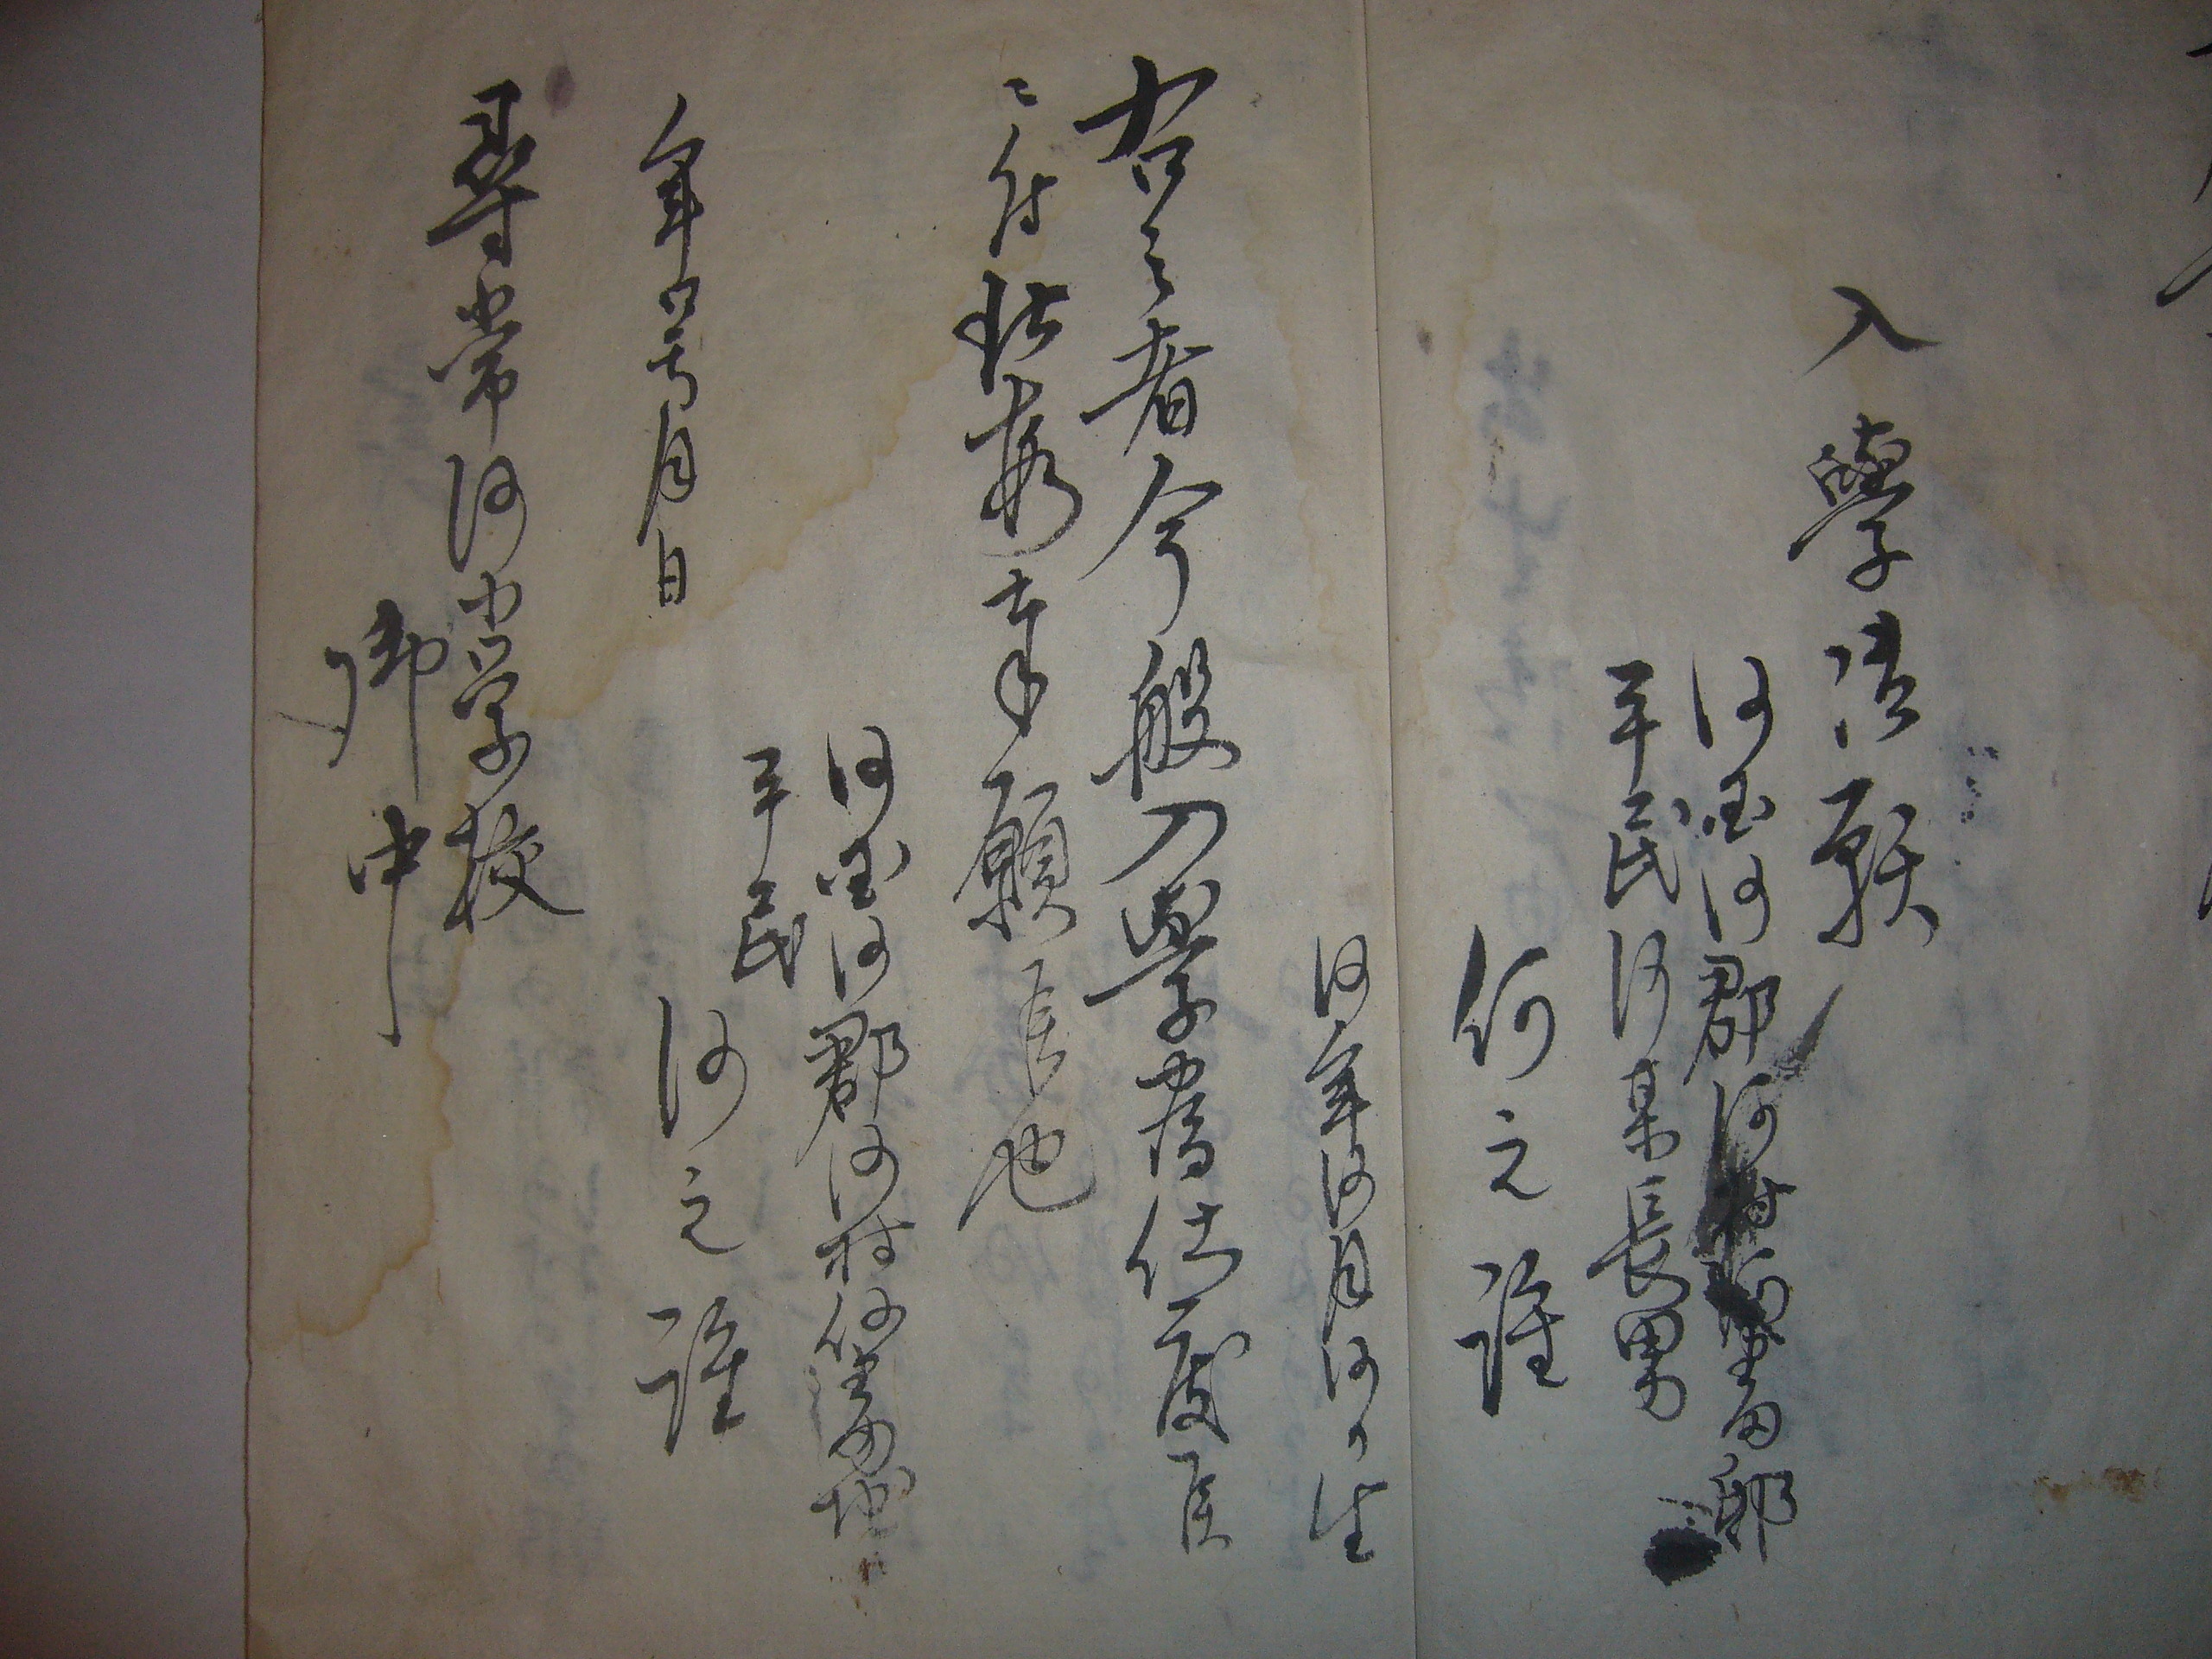 入學御願
何国何郡何村何番邸
平民何某長男
何之誰
何年何月何日生
右之者今般入學為仕度候
ニ付此段奉願候也
何国何郡何村何番地
平民
何之誰
年号月日
尋常何小学校
御中